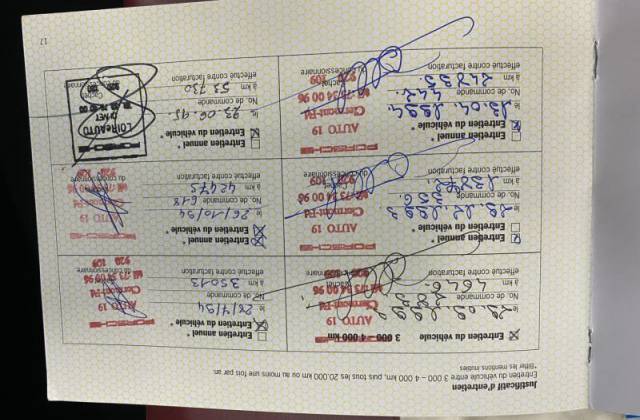 Justificatif d'entretien
Entretien du véhicule entre 3 000 – 4 000 km, puis tous les 20.000 km ou au moins une fois par an
*Biffer les mentions inutiles
3 000 - 4 000 km
PORSCHE
AUTO 19
Clermont-Fd
73 34 00 96
920 109
No. de commande
à km 4646
effectué contre facturation
Entretien annuel *
Entretien du véhicule *
le 26/7/94
No. de commande
à km 35013
effectué contre facturation
PORSCHE
AUTO 19
Clermont-Fd
73 34 00 96
920 109
Entretien annuel *
Entretien du véhicule *
No. de commande 356
à km
effectué contre facturation
PORSCHE
AUTO 19
Clermont-Fd
73 34 00 96
920 109
Entretien annuel *
Entretien du véhicule *
le 26/10/94
No. de commande 618
à km 42475
effectué contre facturation
PORSCHE
AUTO 19
Clermont-Fd
73 34 00 96
920 109
du concessionnaire
Entretien annuel *
Entretien du véhicule *
le 13.04.1994
No. de commande 442
à km
effectué contre facturation
PORSCHE
AUTO 19
Clermont-Fd
73 34 00 96
920 109
du concessionnaire
Entretien annuel *
Entretien du véhicule *
le 23.06.95
No. de commande
à km 53 730
effectué contre facturation
PORSCHE
LOIRE AUTO
Cachet
17